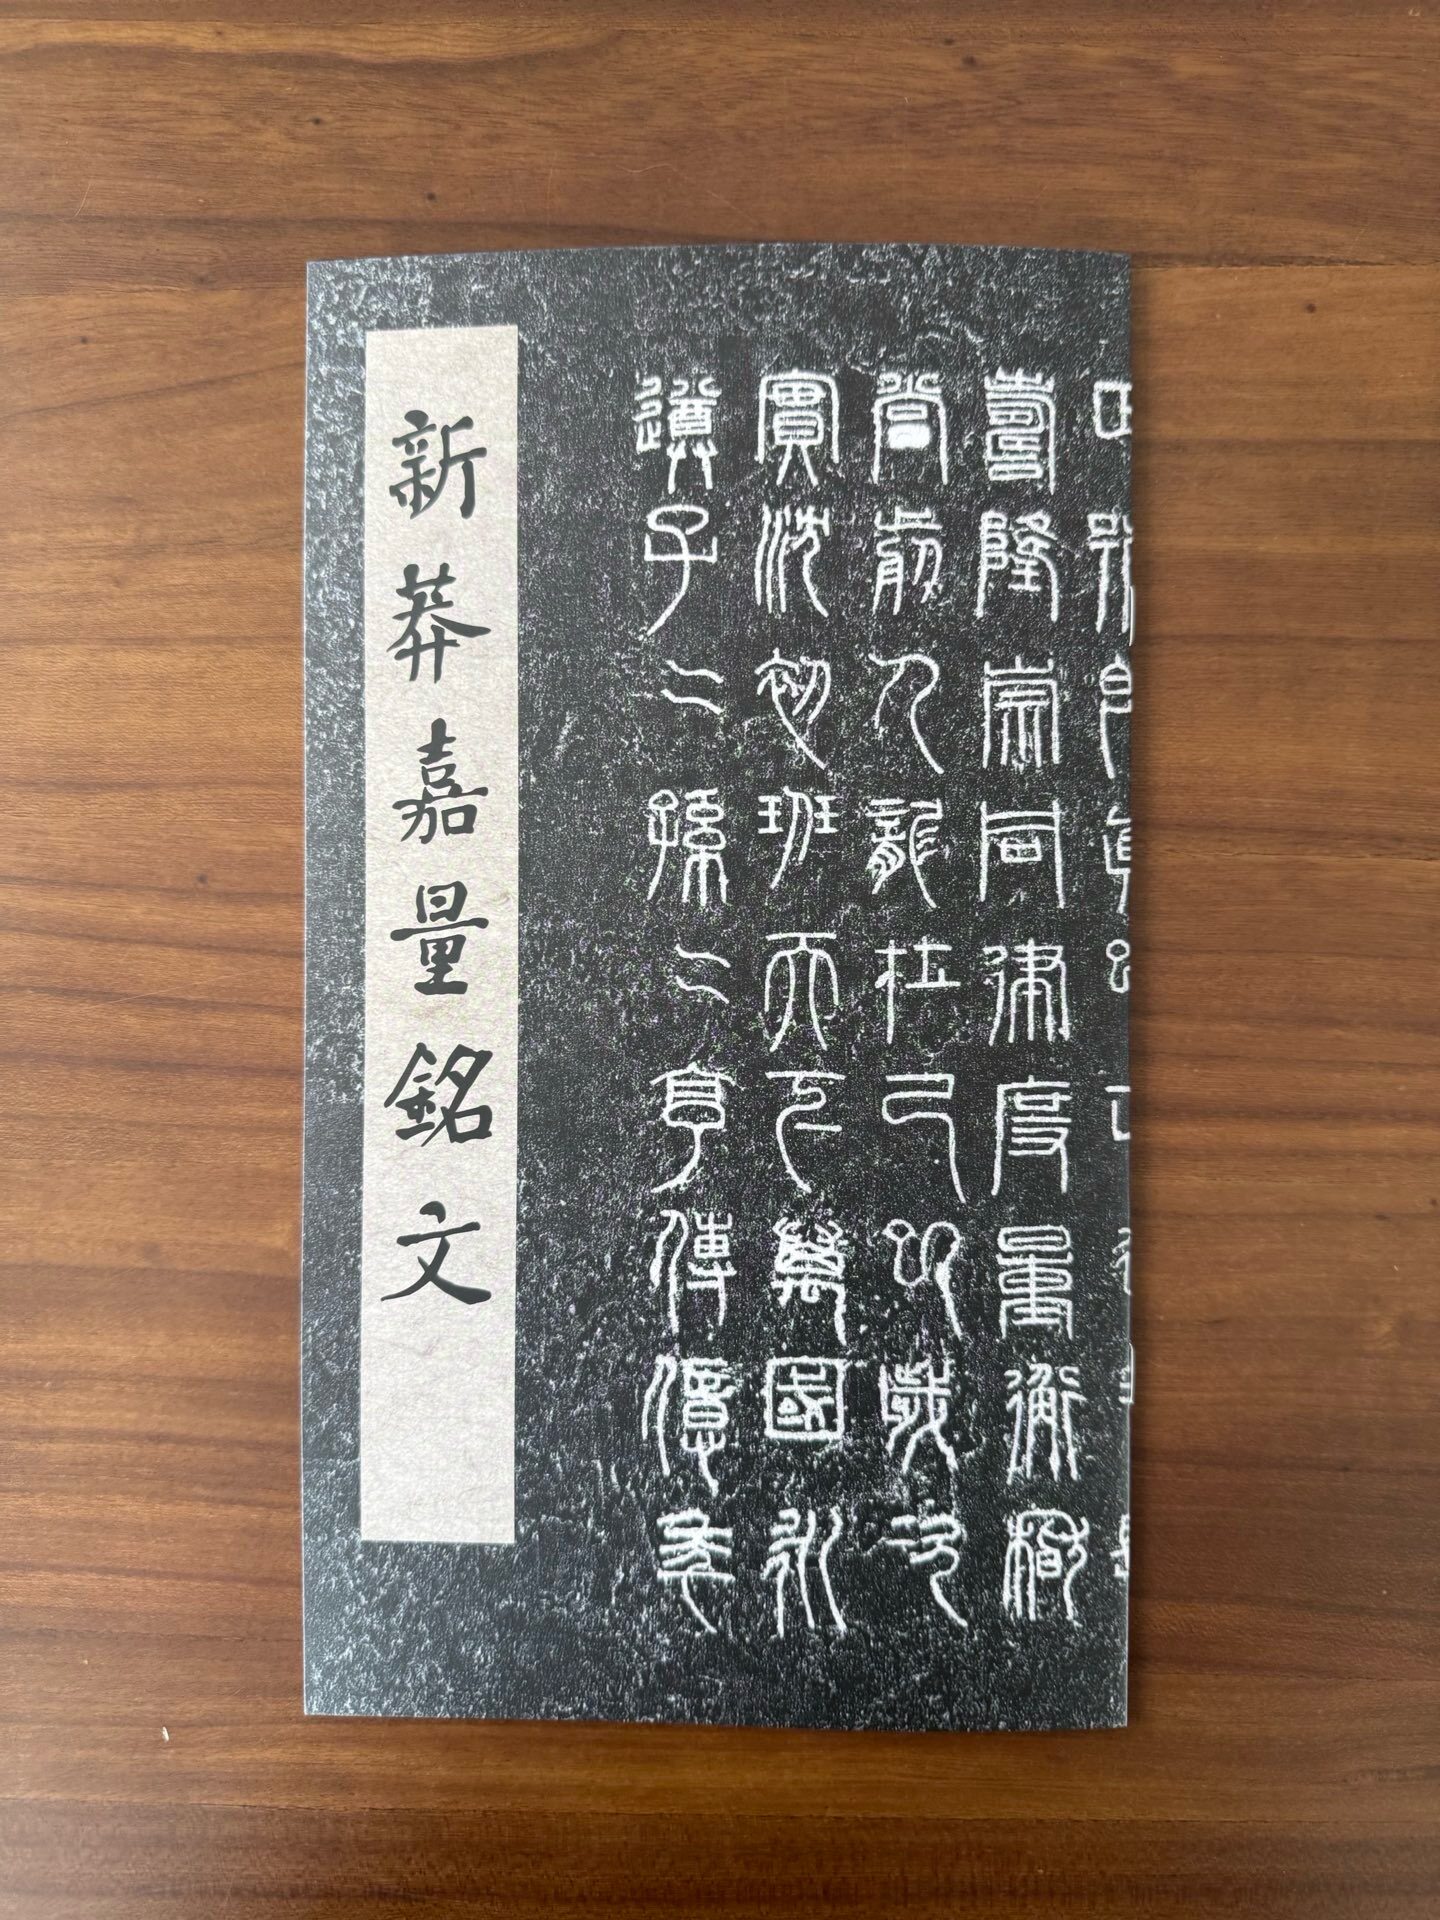 新莽嘉量銘文
壽隆崇同律度量衡稽
當前人龍在己巳歲次
實沈初班天下萬國永
遵子〻孫〻亨傳億年